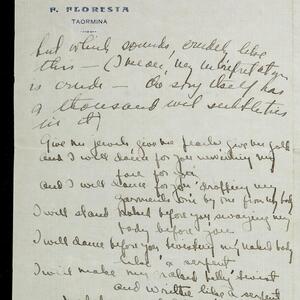 P. FLORESTA
TAORMINA
but which sounds, crudely like
this — (I mean, my interpretation
is crude — the song itself has
a thousand subtleties
in it)
Give me jewels, give me pearls, give me gold
and I will dance for you unveiling my
face for you
and I will dance for you, dropping my
garments one by one from my body
I will stand naked before you swaying my
body before you
I will dance before you twisting my naked body
like a serpent
I will make my naked belly twist
and writhe like a serpent